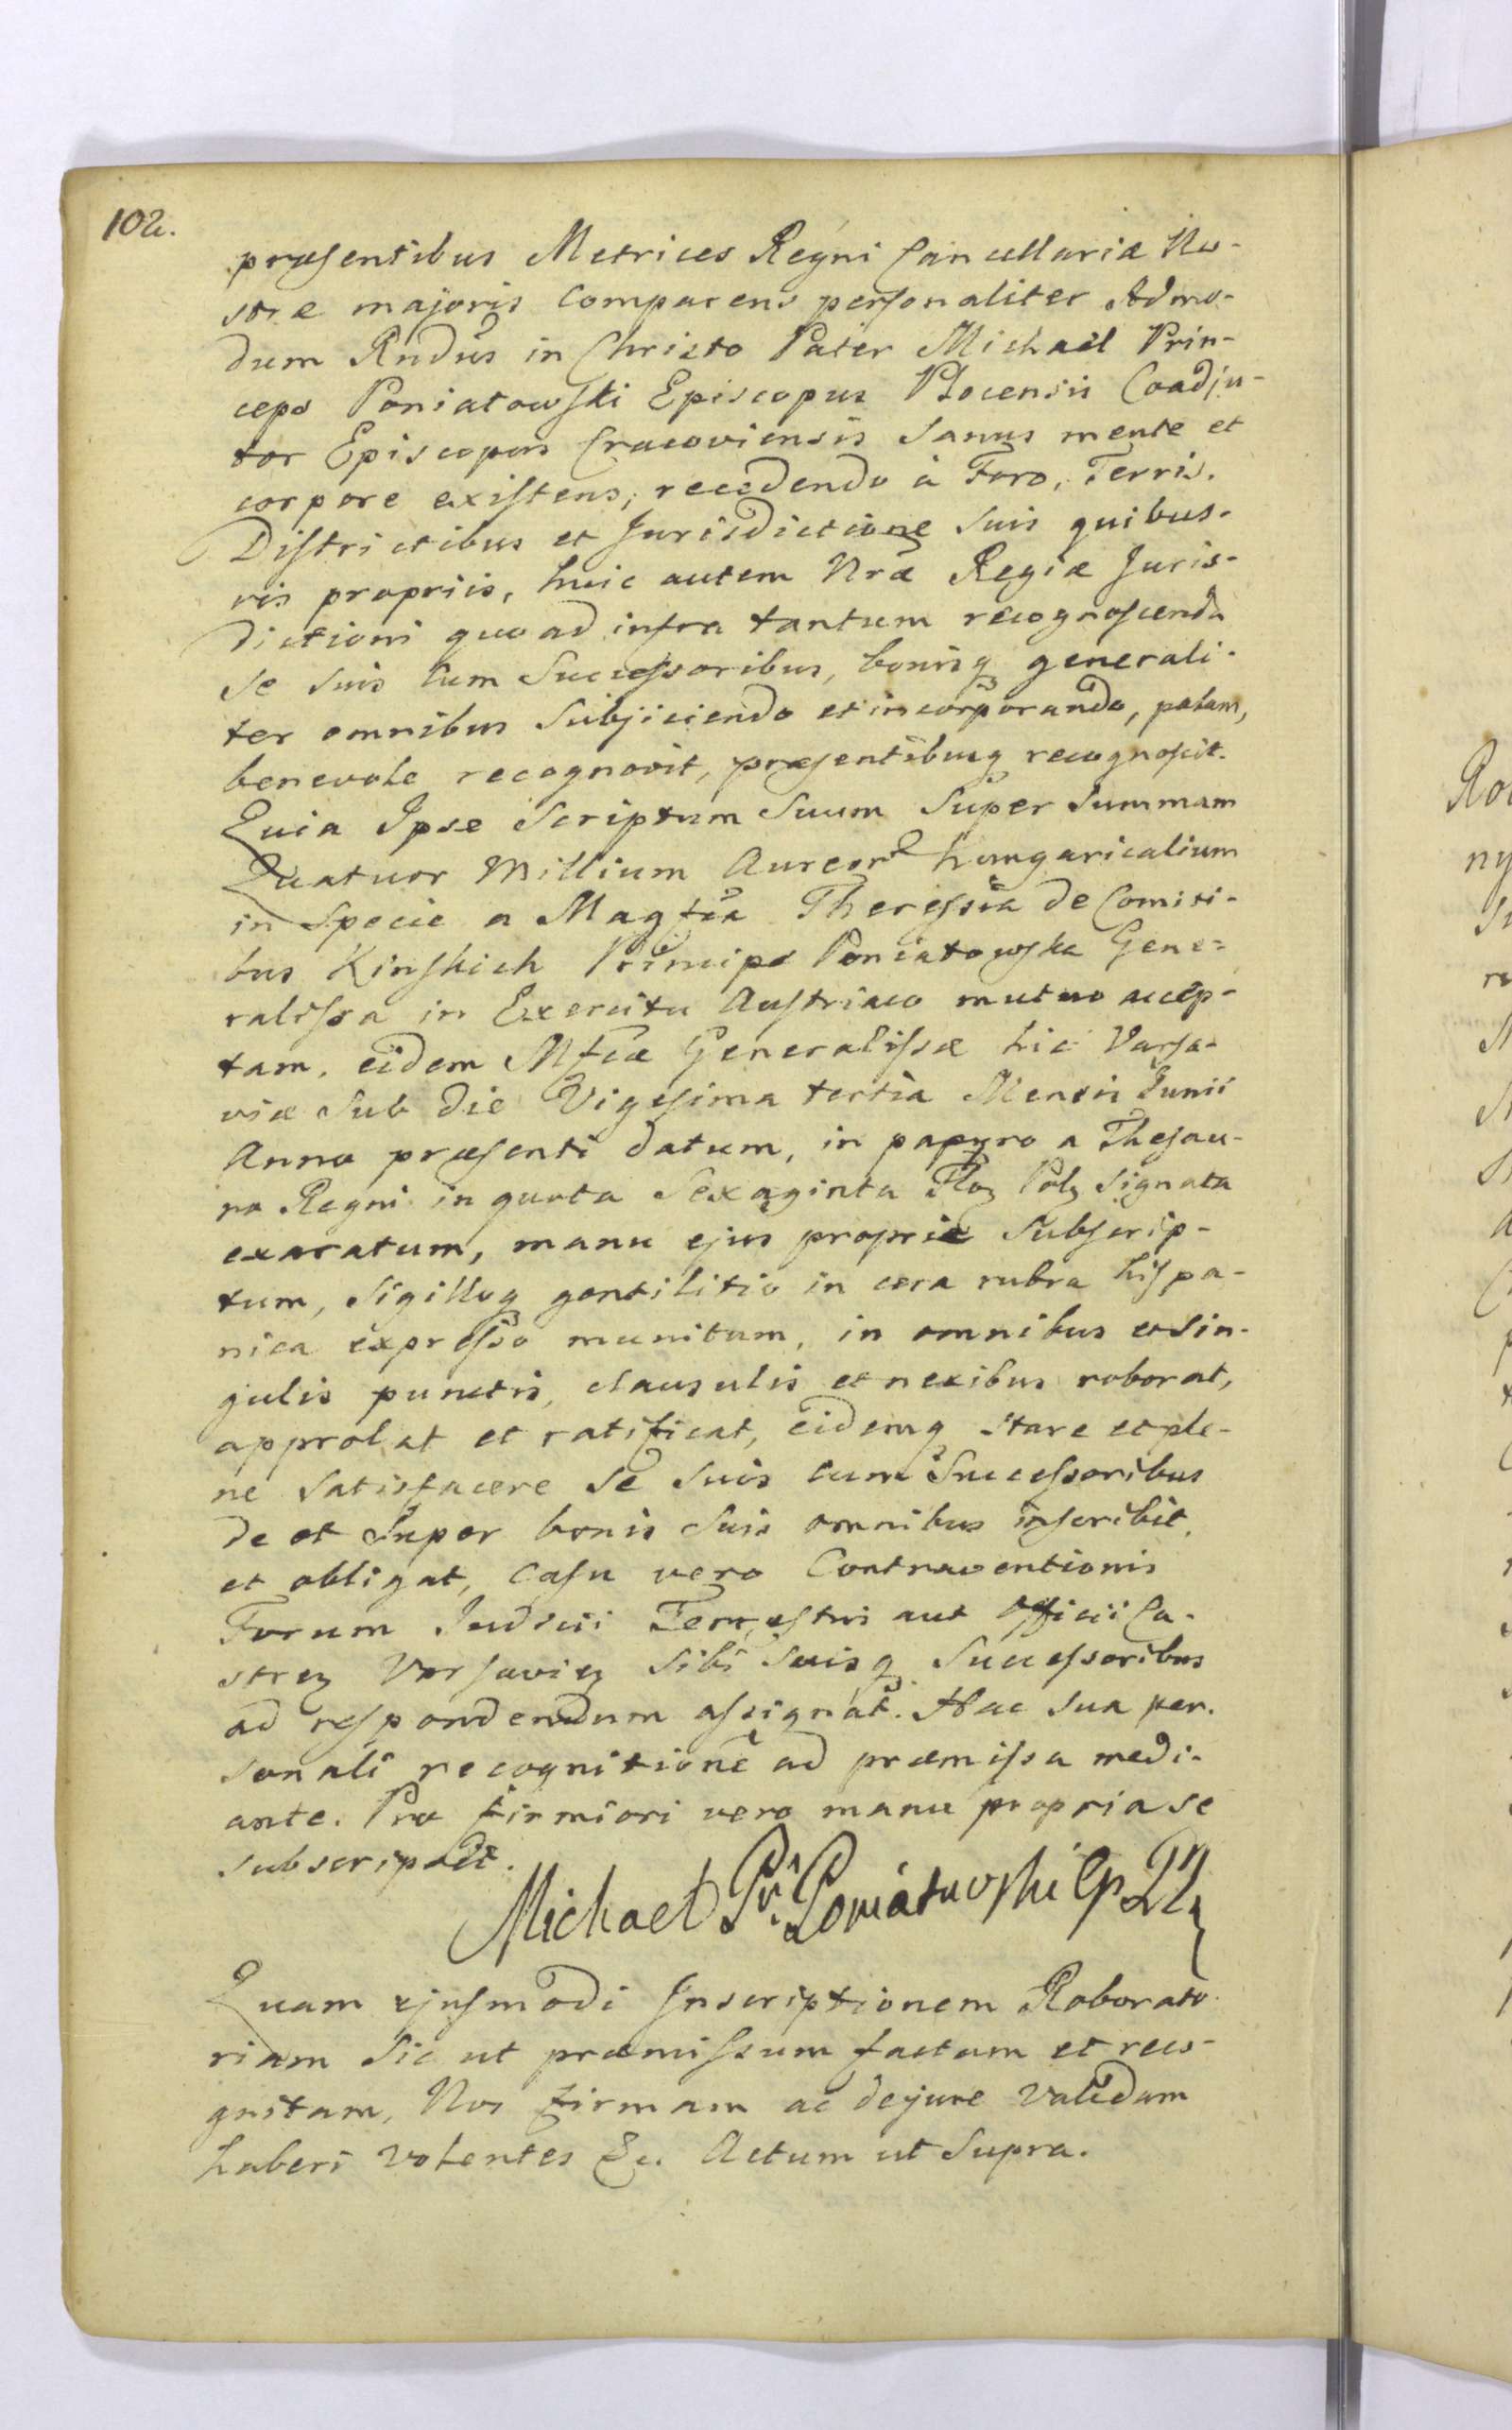 102.
præsentibus Metrices Regni Cancellariæ No-
stræ majoris Comparens personaliter Admo-
dum Rndus in Christo Pater Michael Prin-
ceps Poniatowski Episcopus Plocensis Coadju-
tor Episcopus Cracoviensis Sanus mente et
corpore existens, recedendo à Foro, Terris.
Districtibus et Jurisdictione Suis quibus-
vis propriis, huic autem Nræ Regiæ Juris-
dictioni quoad infra tantum recognoscenda
Se Suis Cum Successoribus, bonisq generali-
ter omnibus Subjiciendo et incorporando, palam,
benevole recognovit, præsentibusq recognoscit.
Quia Ipse Scriptum Suum Super Summam
Quatuor Millium Aureor hungaricalium
in Specie a Magfca Theressia de Comiti-
bus Kinskich Princips Poniatowska Gene-
ralissa in Exercitu Austriaco mutuo accep-
tam, eidem Mfcæ Generalissæ hic Varsa-
viæ Sub die Vigesima tertia Mensis Junii
Anno præsenti datum, in papyro a Thesau-
ro Regni in quota Sexaginta Flor Pol Signata
exaratum, manu ejus propria Subscrip-
tum, Sigilloq gentilitio in cera rubra hispa-
nica expresso munitum, in omnibus et Sin-
gulis punctis, clausulis et nexibus roborat,
approbat et ratificat, eidemq Stare et ple-
ne Satisfacere Se Suis cum Successoribus
de et Super bonis Suis omnibus inscribit,
et obligat, Casu vero Contraventionis
Forum Judicii Terrestris aut Officii Ca-
stren Varsavien Sibi Suisq Successoribus
ad respondendum assignat. Hac Sua per-
sonali recognitione ad præmissa medi-
ante. Pro firmiori vero manu propria se
subscripsit.
Michael Pr: Poniatowski Ep Pł
Quam ejusmodi Inscriptionem Roborato-
riam Sic ut præmissum factam et reco-
gnitam, Nos firmam ac dejure Validam
haberi Volentes &c. Actum ut Supra.